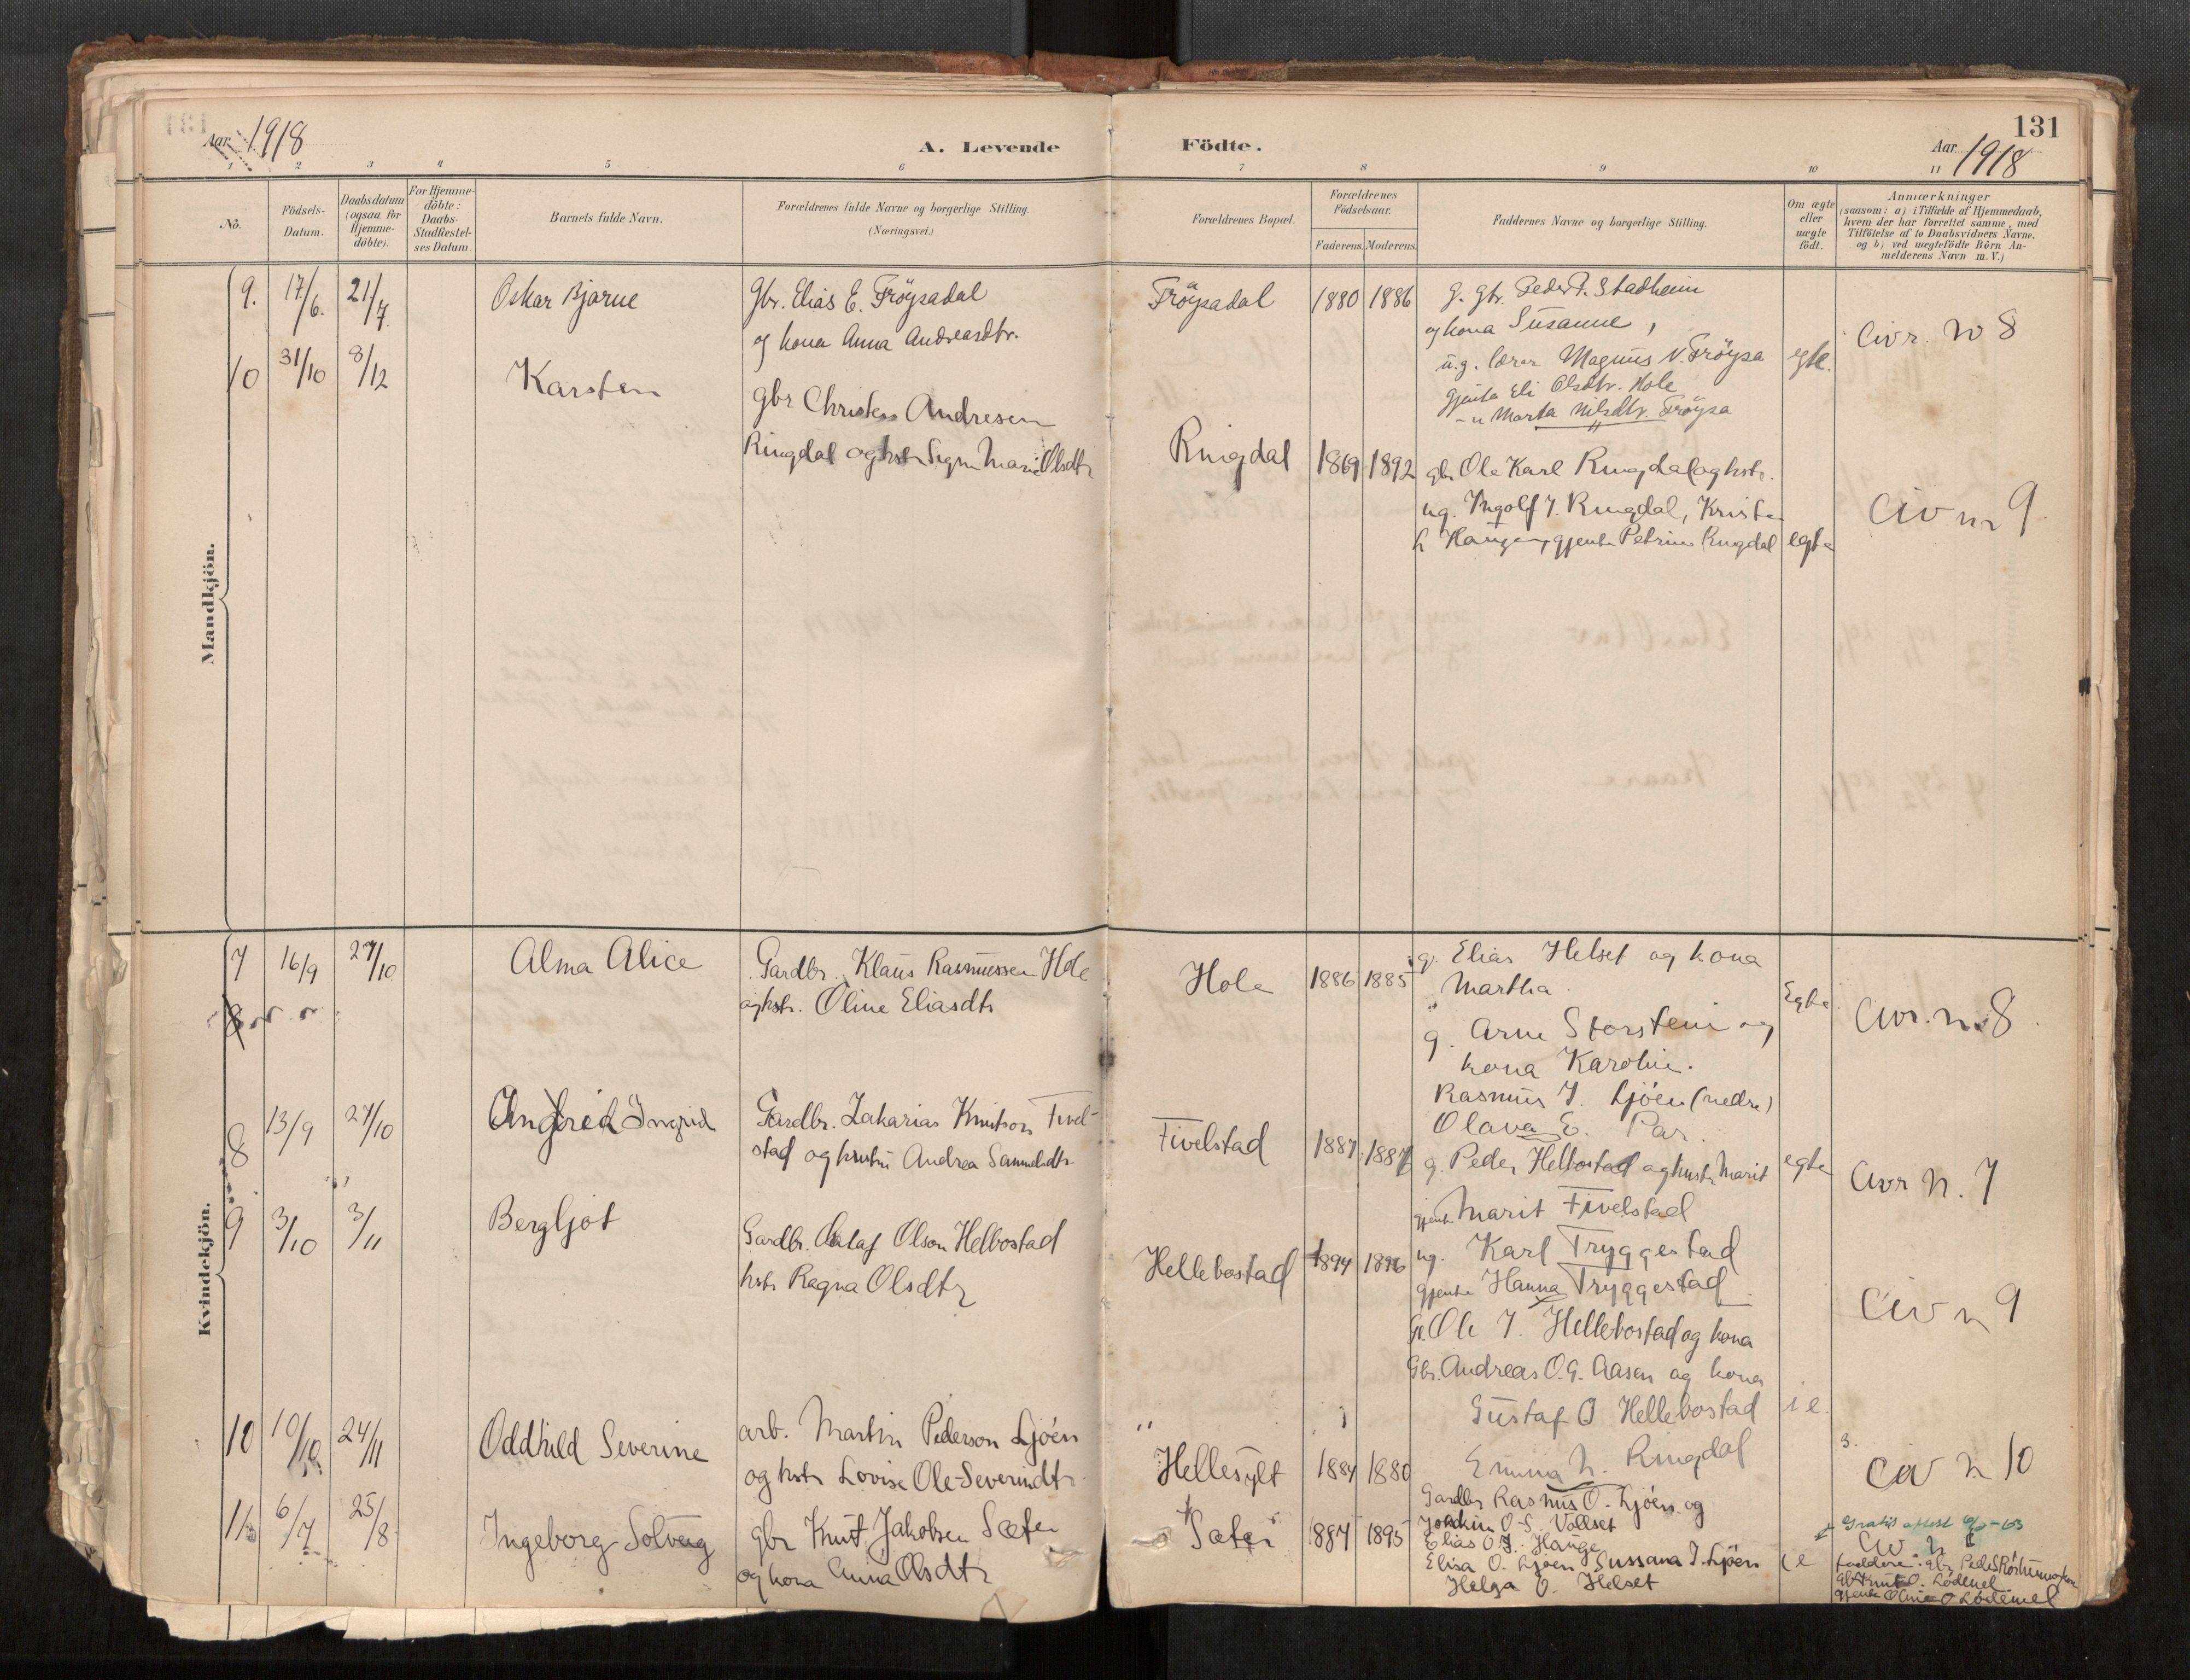 131
Aar 1918
A. Levende Födte.
Aar 1918
1 2 3 4 5 6 7 8 9 10 11
No.
Födsels-Datum.
Daabsdatum (ogsaa for Hjemme-döbte).
For Hjemme-döbte: Daabs-Stadfæstel-ses Datum.
Barnets fulde Navn.
Forældrenes fulde Navne og borgerlige Stilling.
(Næringsvei.)
Forældrenes Bopæl.
Forældrenes Födselsaar.
Faderens. Moderens.
Faddernes Navne og borgerlige Stilling.
Om ægte eller uægte födt.
Anmærkninger
(saasom: a) i Tilfælde af Hjemmedaab,
hvem der har forrettet samme, med
Tilföielse af to Daabsvidners Navne.
og b) ved uægtefödte Börn An-
melderens Navn m. V.)
Mandkjön.
9. 17/6. 21/7. Oskar Bjarne
Gbr. Elias E. Fröysadal
og kona Anna Andreasdtr.
Fröysadal 1880 1886
G. gbr. Peder P. Stadheim
og kona Susanne,
u.g. lærer Magnus N. Fröysa
gjenta Eli Olsdtr. Hole
Marta Nilsdtr. Fröysa
egte.
Civr. No 8
10 31/10 8/12 Karsten
gbr Christen Andresen
Ringdal og hstr Sign Marie Olsdtr
Ringdal 1869 1892
gbr Ole Karl Ringdal og hstr.
ug. Ingolf J. Ringdal, Kristen
Haugen, gjenta Petrine Ringdal
egte
Civ nr 9
Kvindekjön.
7 16/9 27/10 Alma Alice
Gardbr. Klaus Rasmussen Hole
og hstr. Oline Eliasdtr
Hole 1886 1885
g. Elias Helset og kona
Martha.
g. Arne Storstein og
kona Karoline.
Rasmus J. Ljöen (nedre)
Olava E. Par.
Egte
Civr. nr. 8
8
8 13/9 27/10 Ingrid
Gardbr. Zakarias Knutson Fivel-
stad og hustru Andrea Samuelsdtr.
Fivelstad 1887 1887
g. Peder Hellbostad og hustr Marit
gjenta Marit Fivelstad
ug. Karl Tryggestad
gjenta Hanna Tryggestad
egte
Civr N. 7
9 3/10 3/11 Bergljot
Gardbr. Olaf Olson Helbostad
hstr Ragna Olsdtr
Hellebostad 1894 1896
G. Ole J. Hellebostad og kona
Gbr. Andreas O.G. Aasen og kona
Gustaf O Hellebostad
Emma N. Ringdal
i e.
Civ nr 9
10 10/10 24/11 Oddhild Severine
arb. Martin Pederson Ljöen
og hstr Lovise Ole-Severindtr
Hellesylt 1884 1880
Gardbr Rasmus O. Ljöen og
Joakim O-S. Vollset
Elias O.J. Hauge
Elisa O. Ljöen, Sussana J. Ljöen
Helga O. Helset
Civ nr 10
11 6/7 25/8 Ingeborg Solveig
gbr Knut Jakobsen Sæter
og kona Anna Olsdtr
Sæter 1887 1895
i e
Gratis attest
Civ nr
faddere: gbr Peder
gbr Knut O. Lödemel
gjenta Oline O Lödemel